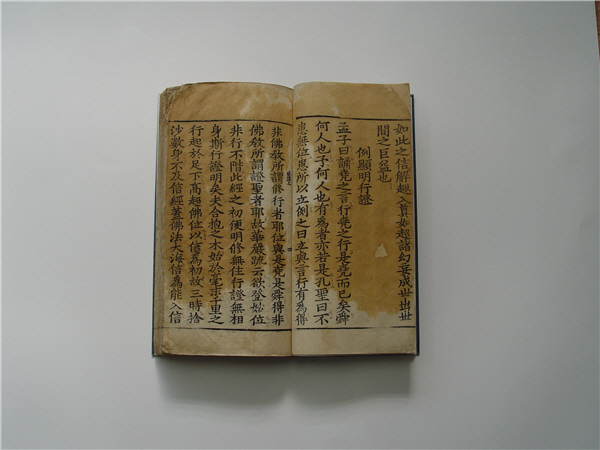 如此之信解趣入眞如超諸幻妄成世出世
間之巨益也
例顯明行證
孟子曰誦堯之言行堯之行是堯而已矣舜
何人也予何人也有爲者亦若是孔聖曰不
患無位患所以立例之曰立與言行有爲得
非佛敎所謂修行者耶位與是堯是舜得非
佛敎所謂證聖者耶故華嚴疏云欲登妙位
非行不階此經之初便明修無住行證無相
身斯行證明矣夫合抱之木始於毫末千里之
行起於足下高超佛位以信爲初故三時捨
沙數身不及信經蓋佛法大海信爲能入信